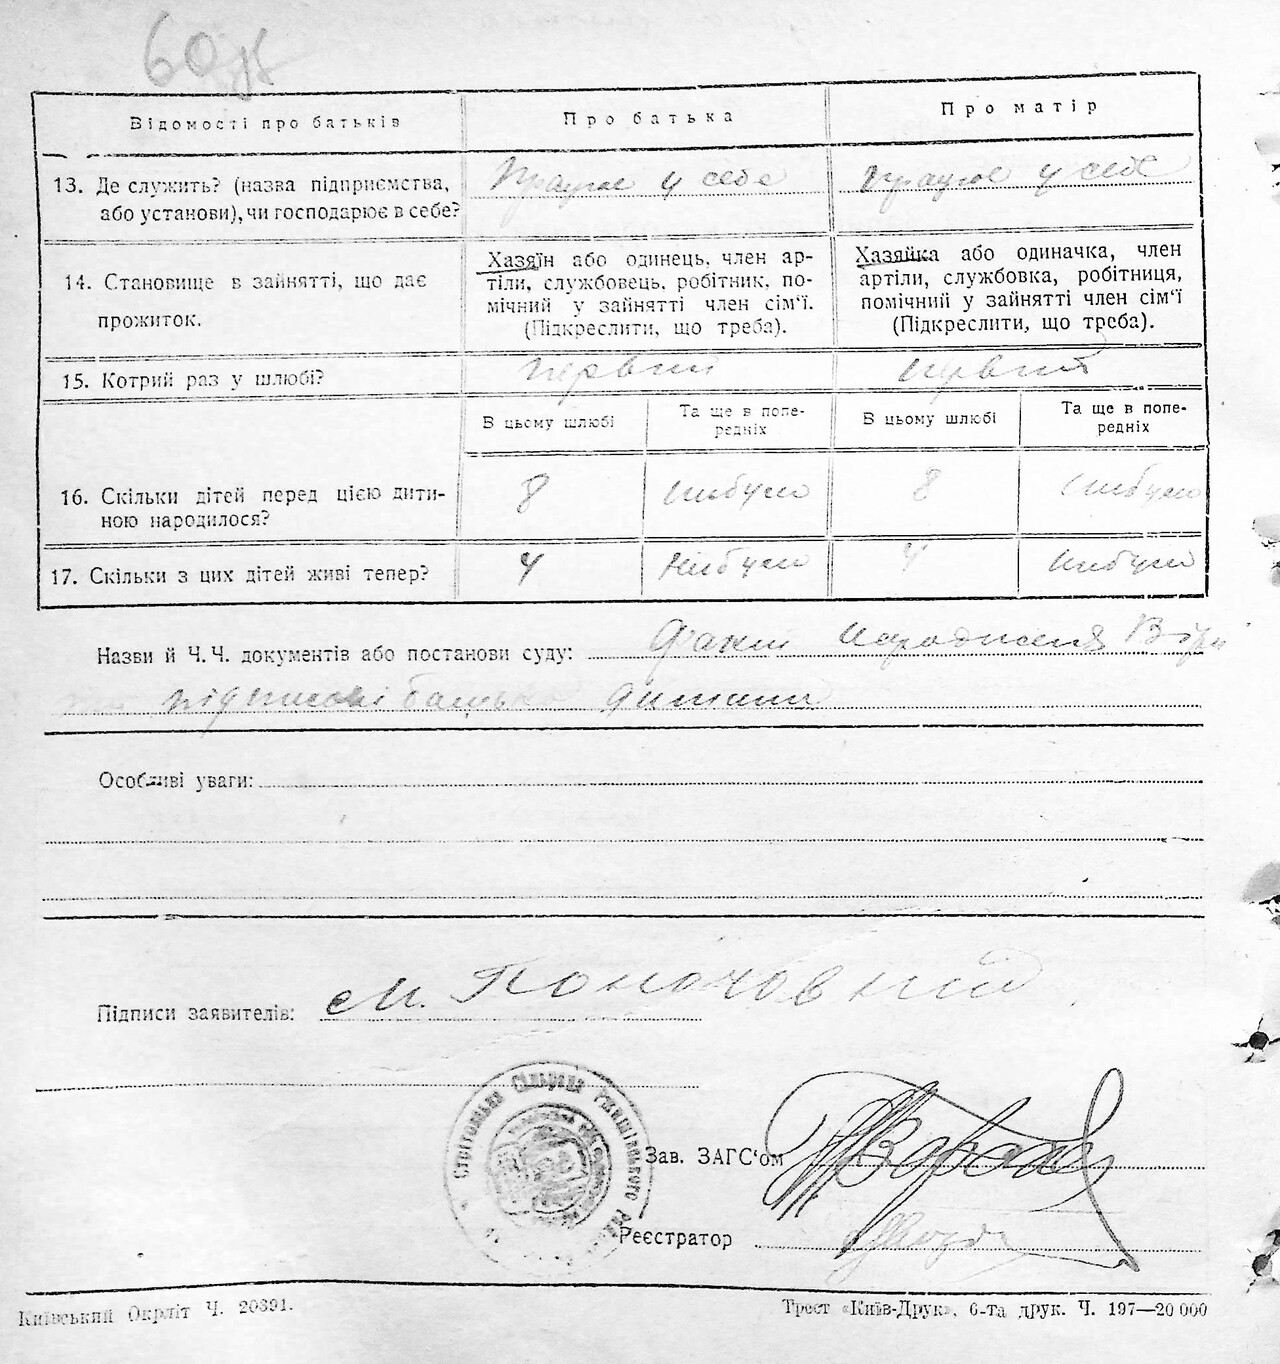 60
Відомості про батьків
Про батька
Про матір
13. Де служить? (назва підприємства,
або установи), чи господарює в себе?
Працює у себе
працює у себе
14. Становище в зайнятті, що дає
прожиток.
Хазяїн або одинець, член ар-
тіли, службовець, робітник, по-
мічний у зайнятті член сім‘ї.
(Підкреслити, що треба).
Хазяйка або одиначка, член
артіли, службовка, робітниця,
помічний у зайнятті член сім‘ї
(Підкреслити, що треба).
15. Котрий раз у шлюбі?
первий
первий
В цьому шлюбі
Та ще в попе-
редніх
В цьому шлюбі
Та ще в попе-
редніх
16. Скільки дітей перед цією дити-
ною народилося?
8
небуло
8
небуло
17. Скільки з цих дітей живі тепер?
4
небуло
4
небуло
Назви й Ч.Ч. документів або постанови суду: Факт народженя Віри
підписові батька дитини
Особливі уваги:
Підписи заявителів: М.
Стайківська Сільрада Ржищівського
Зав. ЗАГС‘ом
Реєстратор
Київський Окрліт Ч. 20391.
Трест «Київ-Друк», 6-та друк. Ч. 197—20 000